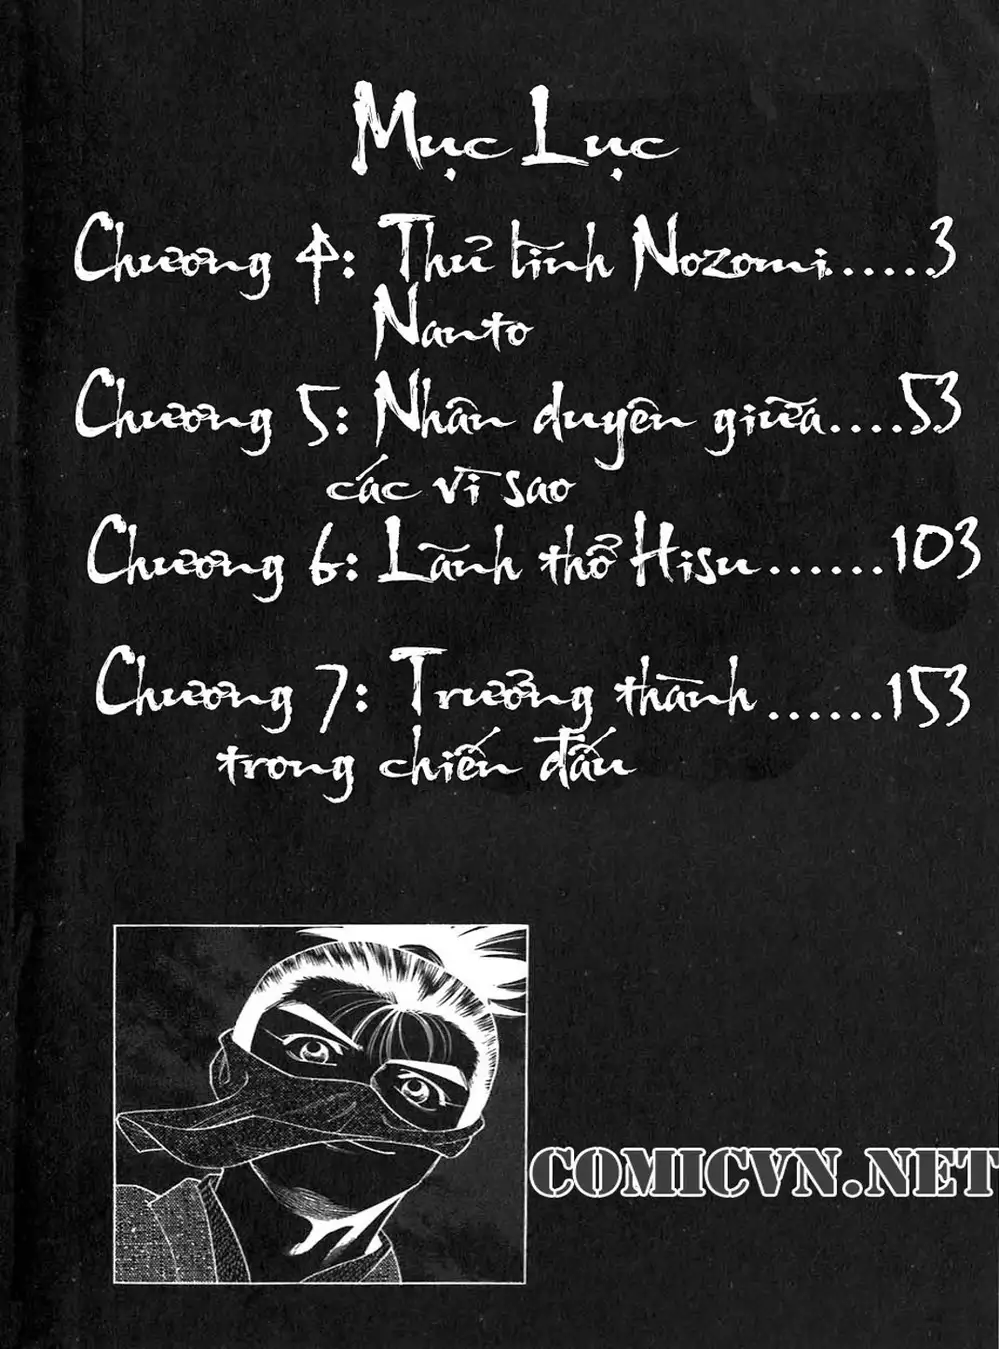 Mục Lục
Chương 4: Thủ lĩnh Nozomi......3
Nanto
Chương 5: Nhân duyên giữa....53
các vì sao
Chương 6: Lãnh thổ Hisu......103
Chương 7: Trưởng thành......153
trong chiến đấu
COMICVN.NET